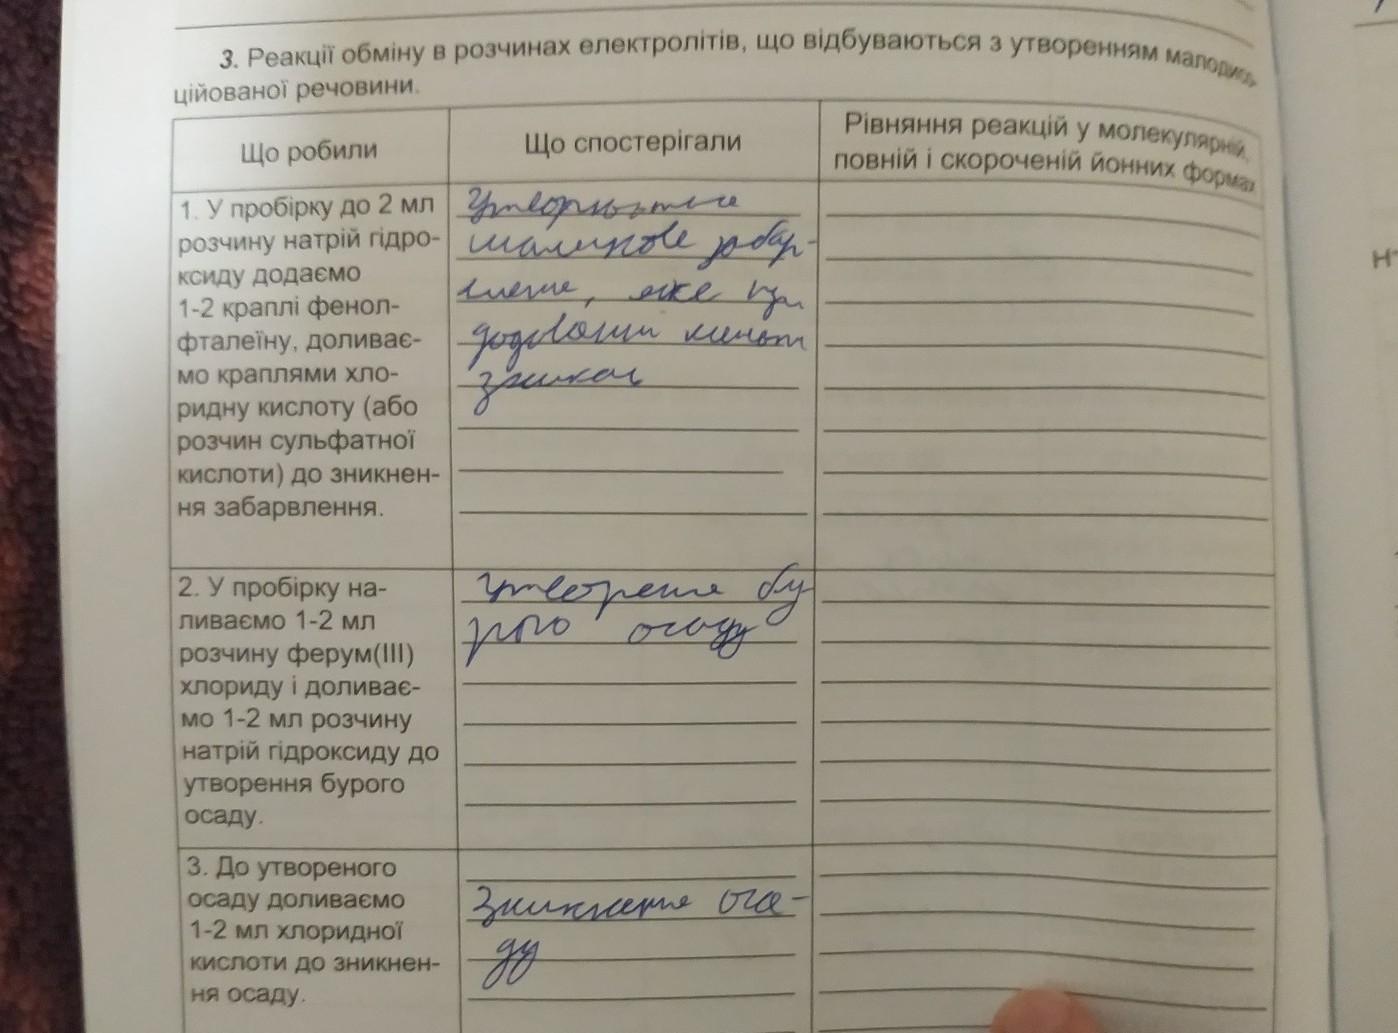 3. Реакції обміну в розчинах електролітів, що відбуваються з утворенням малодисо-
ційованої речовини.
Що робили
Що спостерігали
Рівняння реакцій у молекулярній,
повній і скороченій йонних формах
1. У пробірку до 2 мл
розчину натрій гідро-
ксиду додаємо
1-2 краплі фенол-
фталеїну, доливає-
мо краплями хло-
ридну кислоту (або
розчин сульфатної
кислоти) до зникнен-
ня забарвлення.
Утворюється
малинове забар-
влення, яке при
додаванні
зникає
2. У пробірку на-
ливаємо 1-2 мл
розчину ферум(III)
хлориду і доливає-
мо 1-2 мл розчину
натрій гідроксиду до
утворення бурого
осаду.
утворення бу-
рого осаду
3. До утвореного
осаду доливаємо
1-2 мл хлоридної
кислоти до зникнен-
ня осаду.
Зникнення оса-
ду